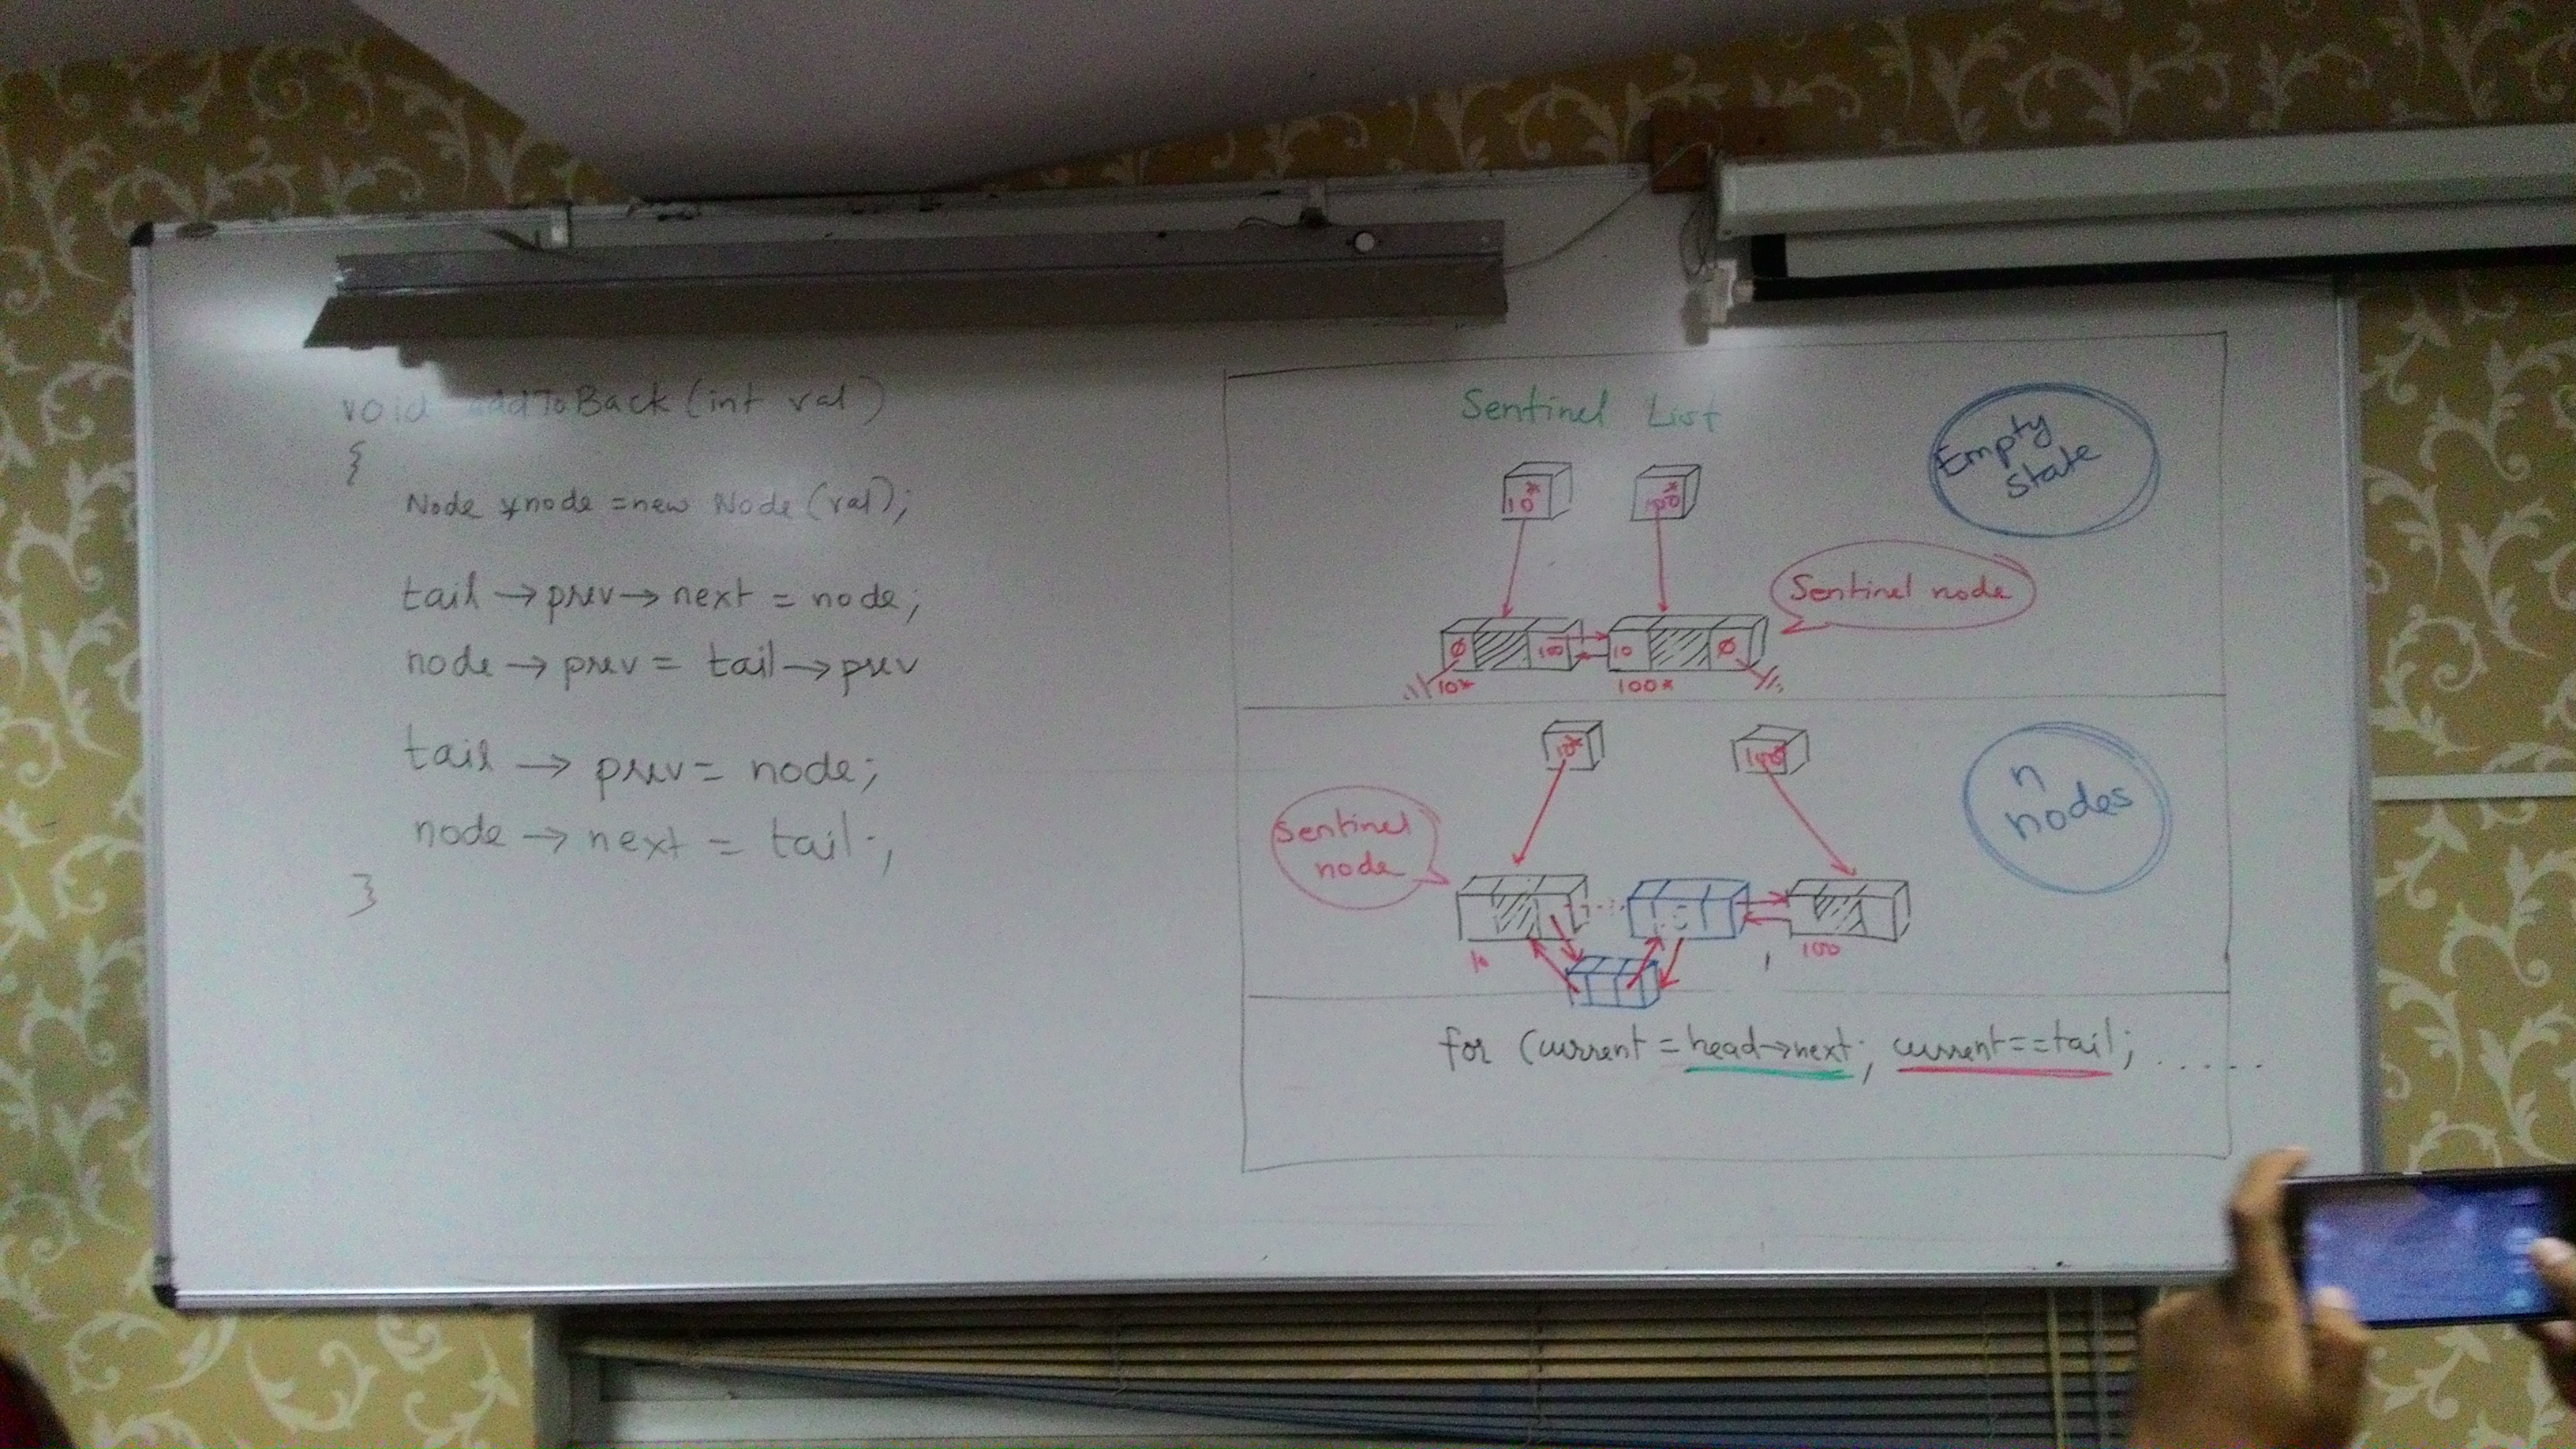 void addToBack(int val)
{
Node *node = new Node(val);
tail → prev → next = node;
node → prev = tail → prev
tail → prev = node;
node → next = tail;
}
Sentinel List
Empty
State
10*
100*
Sentinel node
Ø
100
10
Ø
10*
100*
10*
100*
n
nodes
Sentinel
node
10
100
for (current = head→next; current==tail; .....